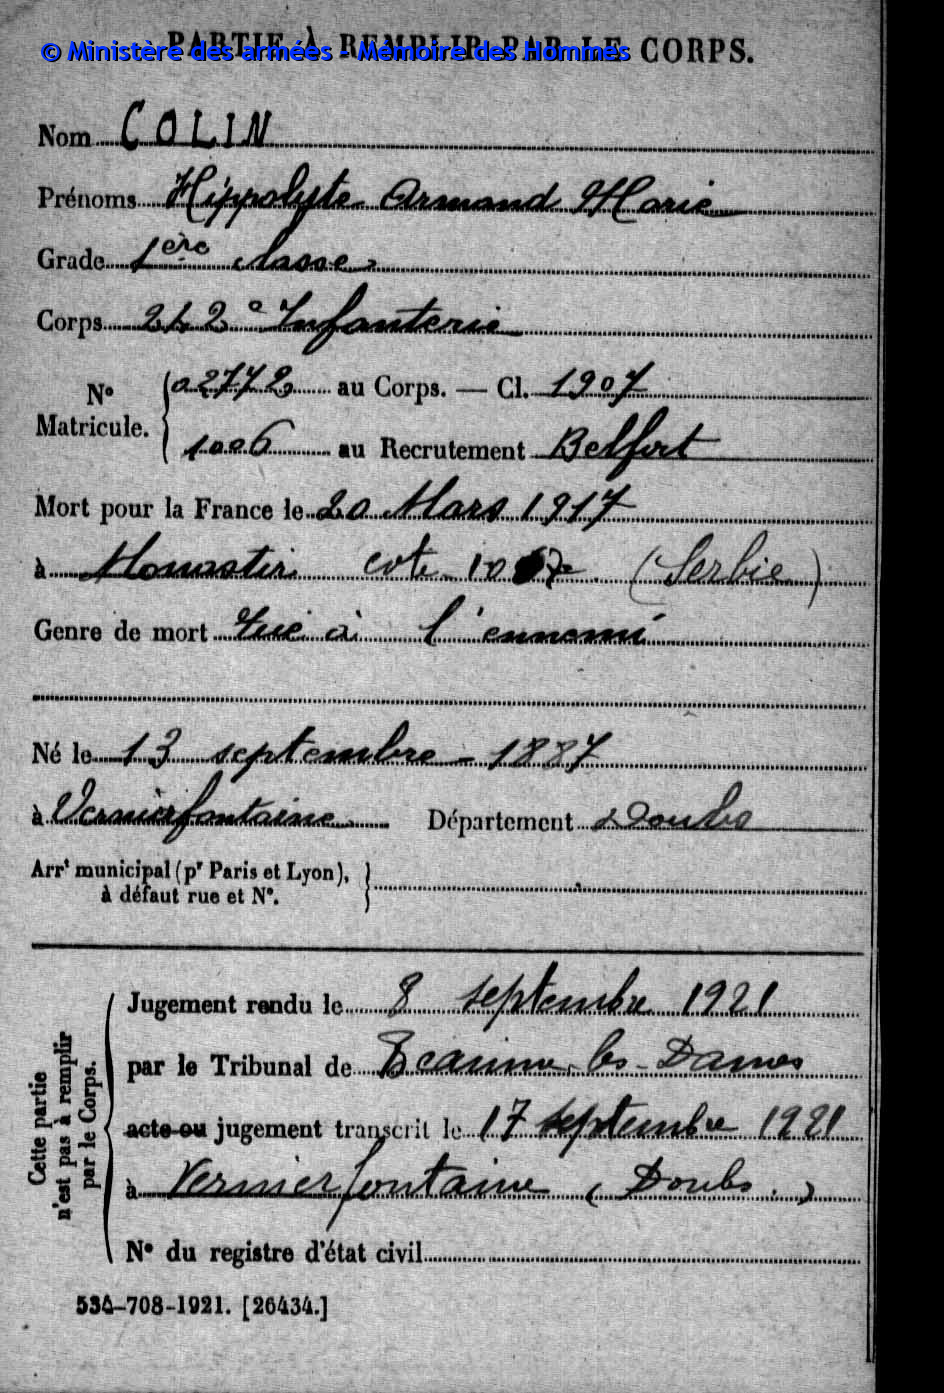 PARTIE À REMPLIR PAR LE CORPS.
© Ministère des armées - Mémoire des Hommes
Nom COLIN
Prénoms Hippolyte Armand Marie
Grade 1ère classe
Corps 242e Infanterie
No Matricule. { 02772 au Corps. — Cl. 1907
1006 au Recrutement Belfort
Mort pour la France le 20 Mars 1917
à Monastir cote (Serbie)
Genre de mort Tué à l'ennemi
Né le 13 septembre - 1887
à Vernierfontaine Département Doubs
Arrt municipal (pr Paris et Lyon), }
à défaut rue et N°.
Cette partie n'est pas à remplir par le Corps.
Jugement rendu le 8 septembre 1921
par le Tribunal de Beaume-les-Dames
acte ou jugement transcrit le 17 septembre 1921
à Vernierfontaine (Doubs.)
N° du registre d'état civil
534-708-1921. [26434.]